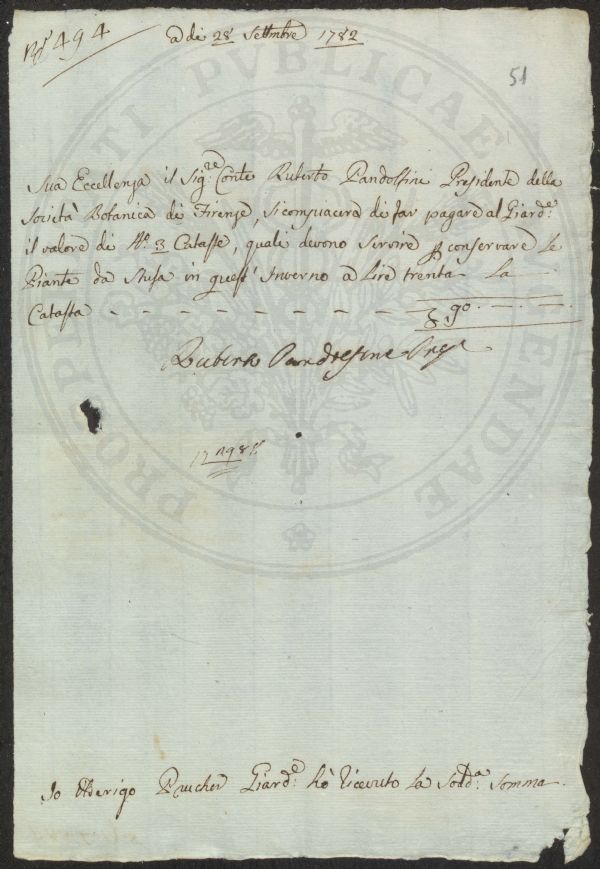 N.º 494
a dì 28 Settmbre 1782
51
Sua Eccellenza il Sig:re Conte Ruberto Pandolfini Presidente della
Società Botanica di Firenze, si compiacerà di far pagare al Giard:e
il valore di N.º 3 Cataste, quali devono servire p conservare le
Piante da Stufa in quest' Inverno a Lire trenta la
Catasta - - - - - - - - - £ 90. -
Ruberto Pandolfini Pres:
PROSPERITATI PVBLICAE AVGENDAE
Io Olderigo Prucher Giard:e hò ricevuto la Sodd:a Somma